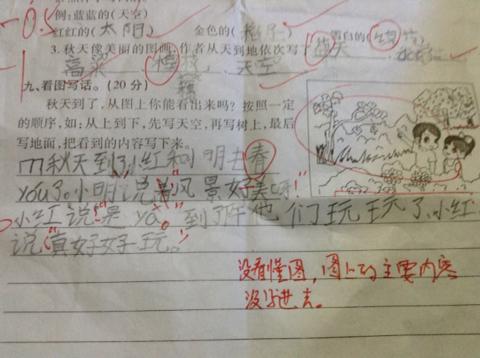 例:蓝蓝的(天空)
红红的(太阳) 金色的( 雪白的(
3.秋天像美丽的图画,作者从天到地依次写了蓝天
高粱 天空
九、看图写话。(20分)
秋天到了,从图上你能看出来吗?按照一定
的顺序,如:从上到下,先写天空,再写树上,最后
写地面,把看到的内容写下来。
秋天到了小红和小明去春
you了。小明说:"风景好美呀!"
小红说:"是ya。"到了 他们玩玩了。小红
说"真好好玩。"
没看懂图,图上的主要内容
没写进去。